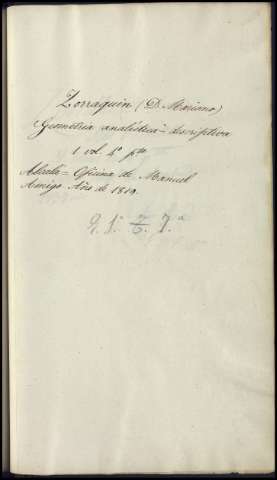 Zorraquin (D. Mariano)
Geometria analitica = descriptiva
1 vol. 4º pta
Alcala = Oficina de Manuel
Amigo Año de 1819.